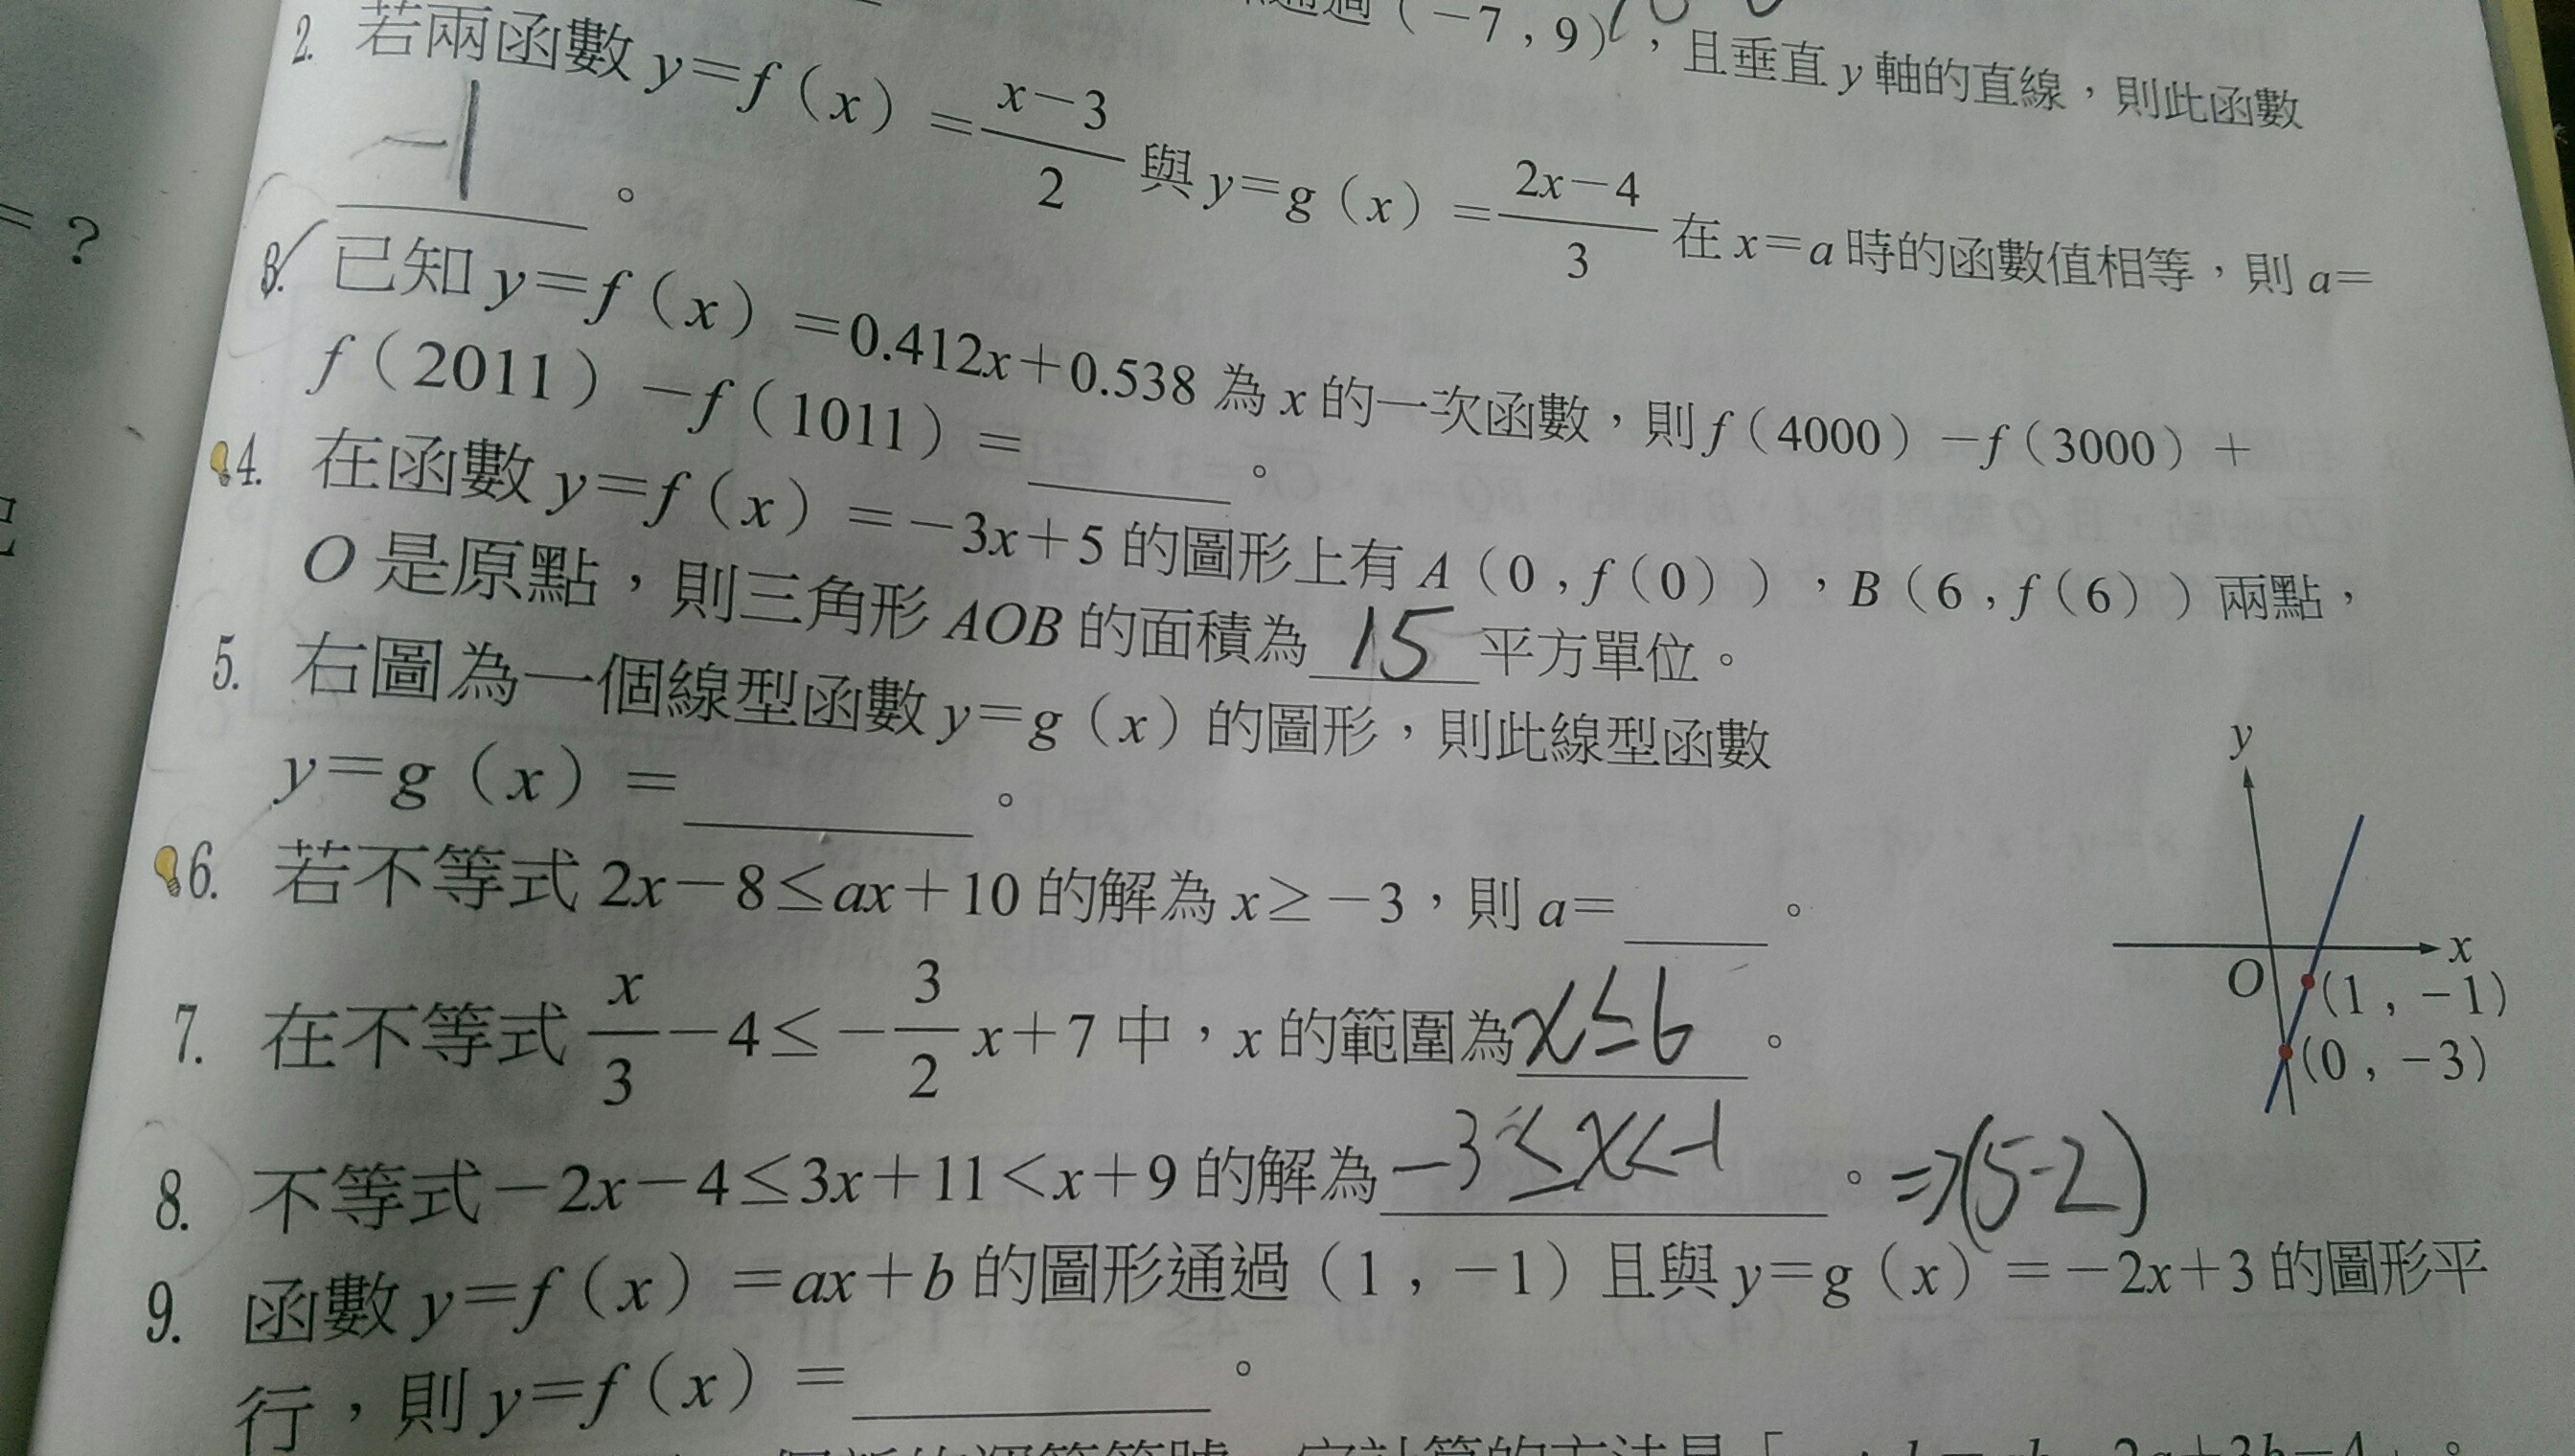 通過（－7 , 9），且垂直 y 軸的直線，則此函數
2. 若兩函數 y＝f（x）＝\frac{x－3}{2} 與 y＝g（x）＝\frac{2x－4}{3} 在 x＝a 時的函數值相等，則 a＝
－1 。
3. 已知 y＝f（x）＝0.412x＋0.538 為 x 的一次函數，則 f（4000）－f（3000）＋
f（2011）－f（1011）＝ 。
4. 在函數 y＝f（x）＝－3x＋5 的圖形上有 A（0 , f（0）），B（6 , f（6））兩點，
O 是原點，則三角形 AOB 的面積為 15 平方單位。
5. 右圖為一個線型函數 y＝g（x）的圖形，則此線型函數
y＝g（x）＝ 。
6. 若不等式 2x－8≤ax＋10 的解為 x≥－3，則 a＝ 。
7. 在不等式 \frac{x}{3}－4≤－\frac{3}{2}x＋7 中，x 的範圍為 x≤6 。
8. 不等式－2x－4≤3x＋11＜x＋9 的解為 －3≤x＜－1 。 ⇒(5-2)
9. 函數 y＝f（x）＝ax＋b 的圖形通過（1 , －1）且與 y＝g（x）＝－2x＋3 的圖形平
行，則 y＝f（x）＝ 。
y
x
O
(1 , －1)
(0 , －3)
＝？